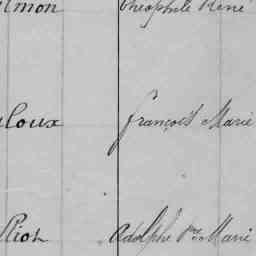 lmon Théophile René
loux François Marie
Rioh Adolphe Pre Marie